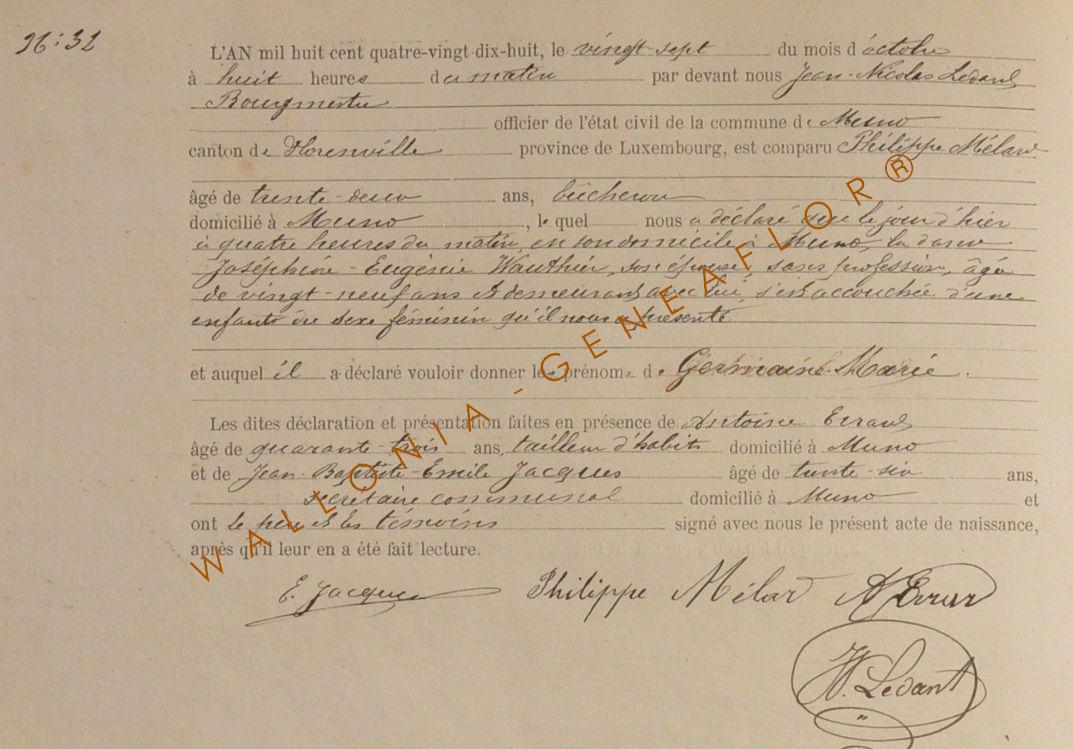 96:32
L'AN mil huit cent quatre-vingt-dix-huit, le vingt-sept du mois d'octobre
à huit heures du matin par devant nous Jean-Nicolas Ledant
Bourgmestre
officier de l'état civil de la commune de Muno
canton de Florenville province de Luxembourg, est comparu Philippe Mélard
âgé de trente-deux ans, bûcheron
domicilié à Muno, le quel nous a déclaré que le jour d'hier
à quatre heures du matin, en son domicile à Muno, la dame
Joséphine-Eugénie Wauthier, son épouse, sans profession, âgée
de vingt-neuf ans et demeurant avec lui, s'est accouchée d'une
enfant du sexe féminin qu'il nous a présenté
et auquel il a déclaré vouloir donner les prénoms de Germaine-Marie.
Les dites déclaration et présentation faites en présence de Antoine
âgé de quarante-trois ans, tailleur d'habits domicilié à Muno
et de Jean-Baptiste-Emile Jacques âgé de trente-six ans,
secrétaire communal domicilié à Muno et
ont le père et les témoins signé avec nous le présent acte de naissance,
après qu'il leur en a été fait lecture.
E. Jacques Philippe Mélard
N. Ledant
WALLONIA-GENEAFLOR®